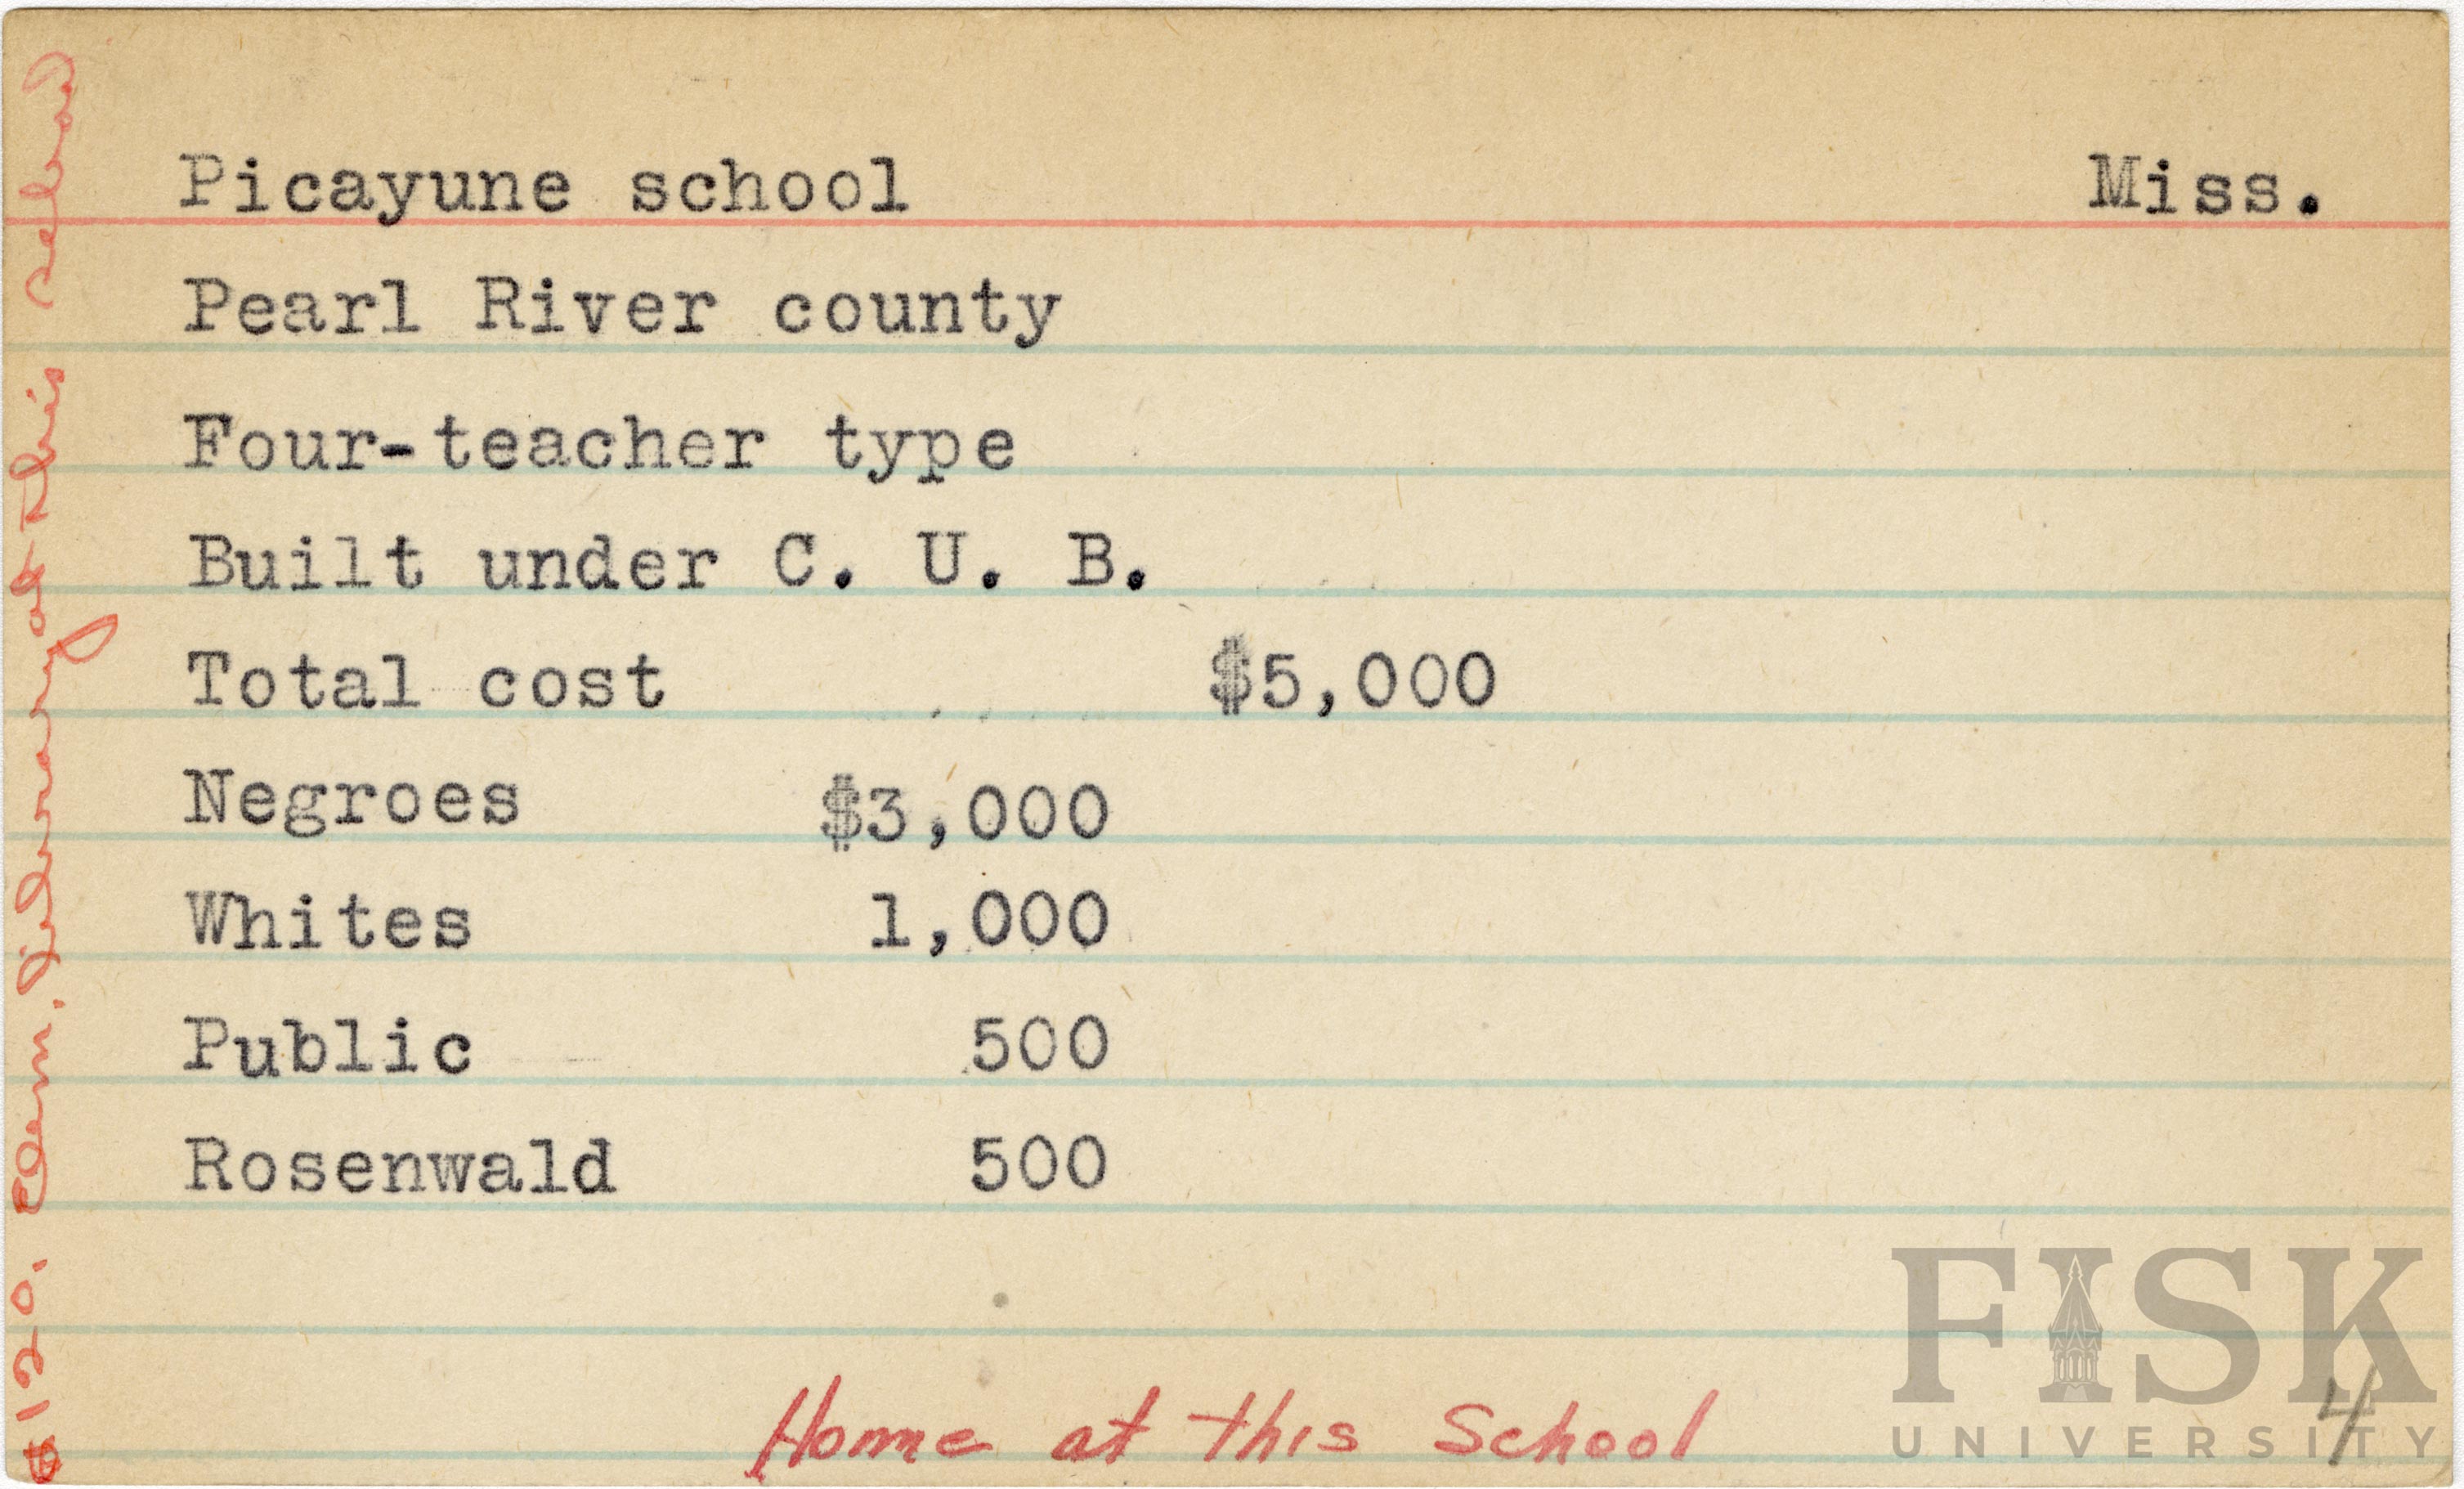 Picayune school Miss.
Pearl River county
Four-teacher type
Built under C. U. B.
Total cost $5,000
Negroes $3,000
Whites 1,000
Public 500
Rosenwald 500
Home at this School
4
$120. Elem. library at this school
FISK
UNIVERSITY